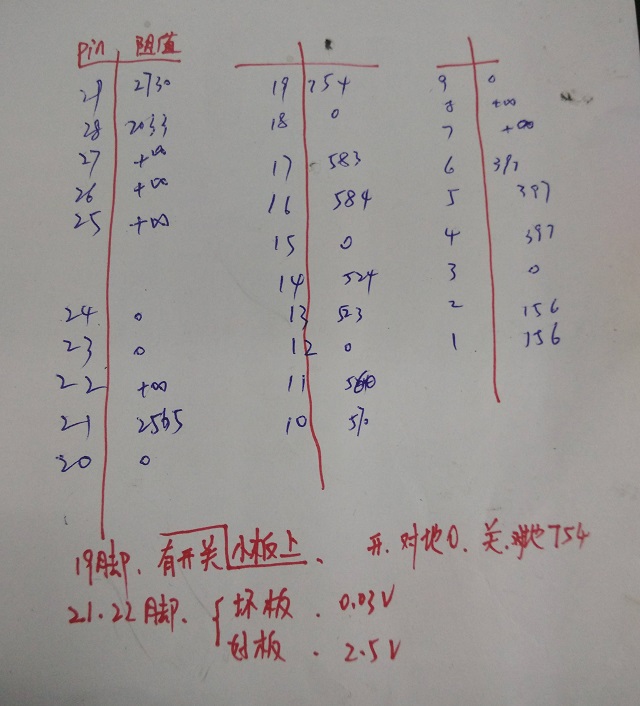 pin 阻值
29 2730
28 2033
27 +∞
26 +∞
25 +∞
24 0
23 0
22 +∞
21 2565
20 0
19 754
18 0
17 583
16 584
15 0
14 524
13 523
12 0
11
10
9 0
8 +∞
7 +∞
6 397
5 397
4 397
3 0
2 156
1 156
19脚、有开关小板上、 开、对地0、关、对地754
21.22脚、{坏板.0.03V
好板.2.5V